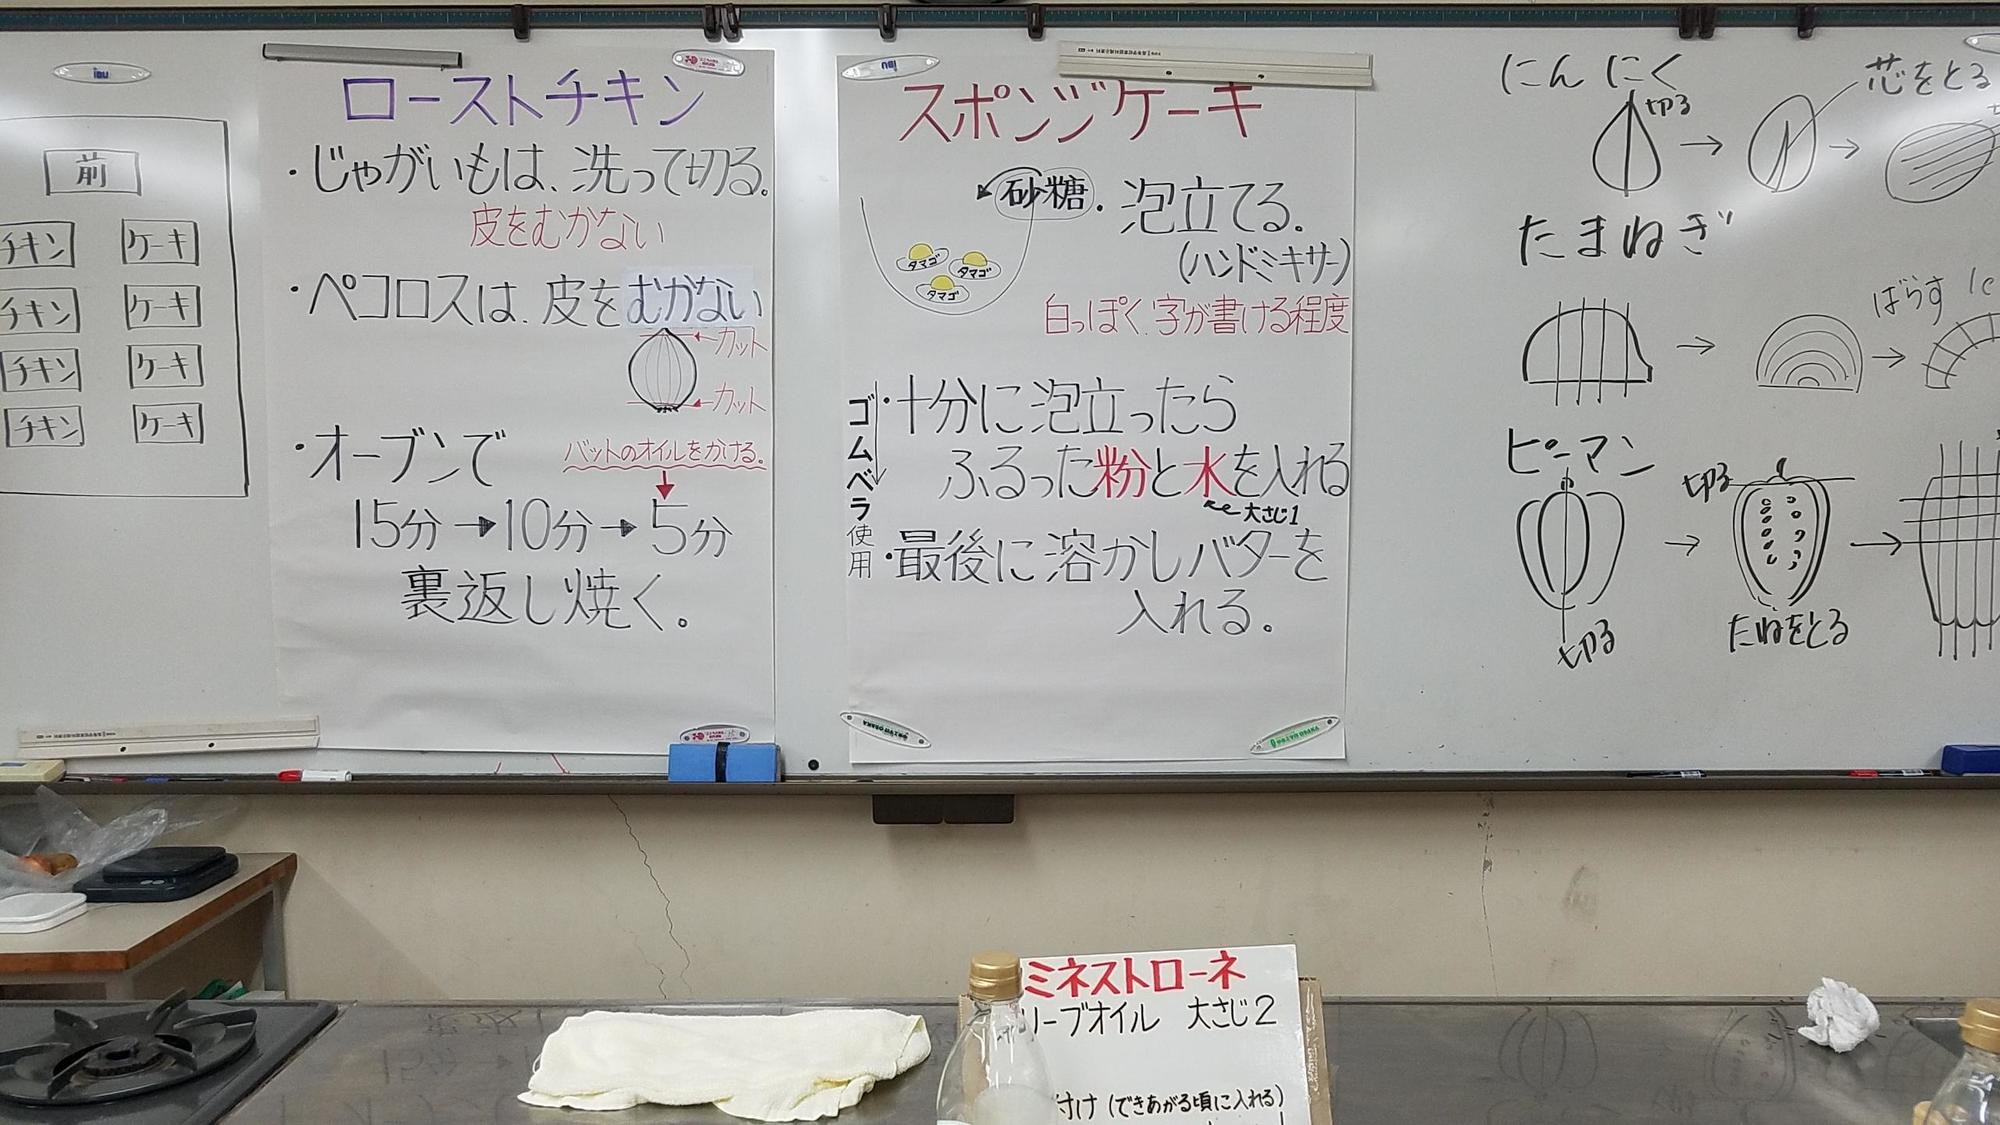 前
チキン ケーキ
チキン ケーキ
チキン ケーキ
チキン ケーキ
ローストチキン
・じゃがいもは、洗って切る。
皮をむかない
・ペコロスは、皮をむかない
カット
カット
・オーブンで
バットのオイルをかける。
15分→10分→5分
裏返し焼く。
スポンジケーキ
砂糖
・泡立てる。
(ハンドミキサー)
タマゴ
タマゴ
タマゴ
白っぽく、字が書ける程度
ゴムベラ使用
・十分に泡立ったら
ふるった粉と水を入れる
大さじ1
・最後に溶かしバターを
入れる。
にんにく
切る
芯をとる
たまねぎ
ばらす
ピーマン
切る
切る
たねをとる
ミネストローネ
リーブオイル 大さじ2
付け(できあがる頃に入れる)